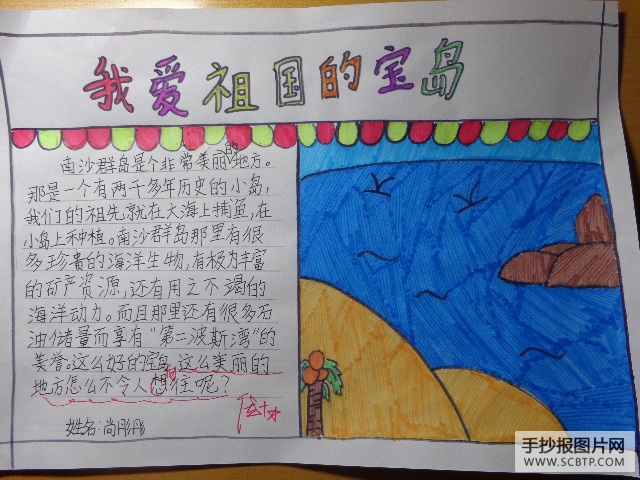 我爱祖国的宝岛
南沙群岛是个非常美丽的地方。
那是一个有两千多年历史的小岛,
我们的祖先就在大海上捕鱼,在
小岛上种植。南沙群岛那里有很
多珍贵的海洋生物,有极为丰富
的矿产资源,还有用之不竭的
海洋动力。而且那里还有很多石
油储量而享有“第二波斯湾”的
美誉。这么好的宝岛,这么美丽的
地方怎么不令人想往呢?
姓名:尚彤彤
手抄报图片网
WWW.SCBTP.COM